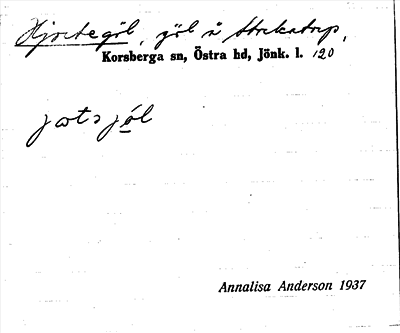 Hjortegöl, göl å Strukatorp,
Korsberga sn, Östra hd, Jönk. l. 120
jotsjöl
Annalisa Anderson 1937